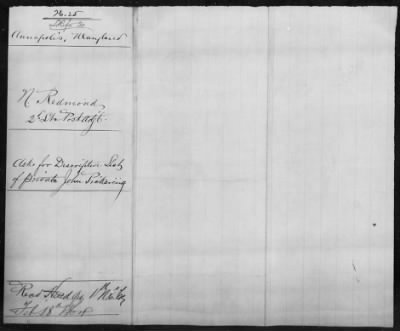 Annapolis, Maryland
N Redmond
2d Lt Post Adjt
Asks for Descriptive List
of Private John Pickering
Recd Head Qrs
Feb 18th